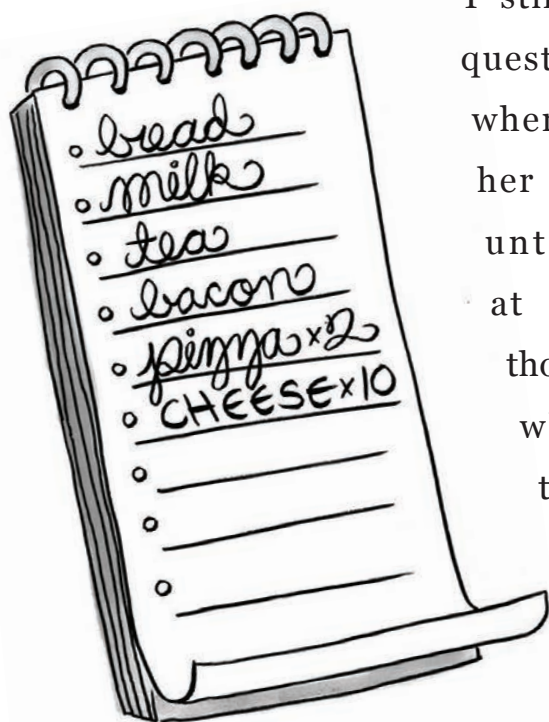 bread
milk
tea
bacon
pizza x2
CHEESE x10
I
quest
when
her
unt
at
tho
w
t